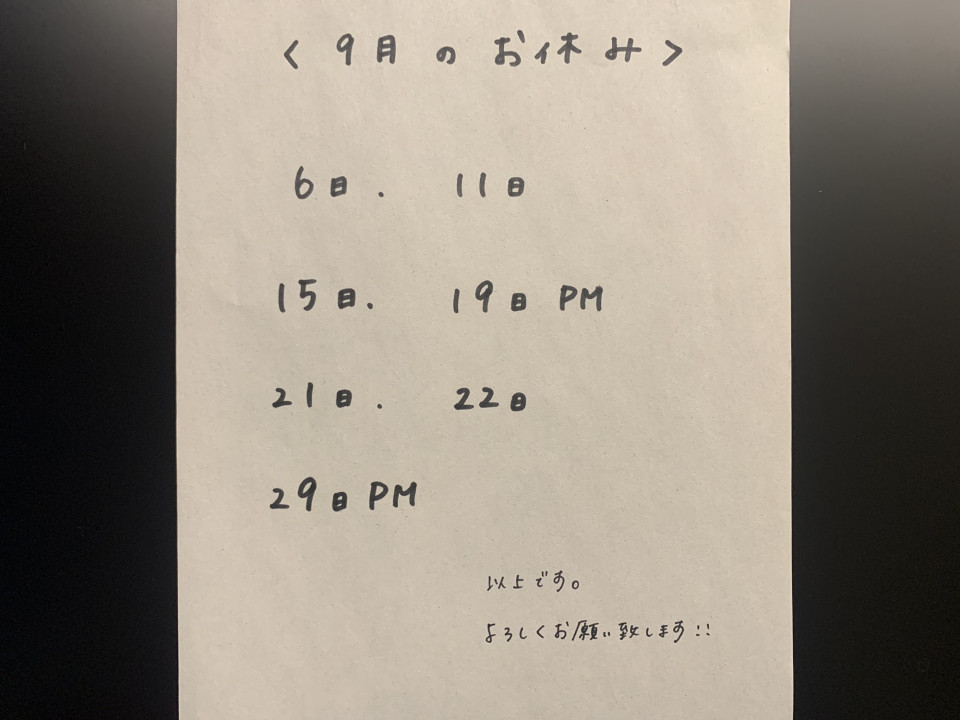 < 9月のお休み >
6日. 11日
15日. 19日 PM
21日. 22日
29日 PM
以上です。
よろしくお願い致します!!